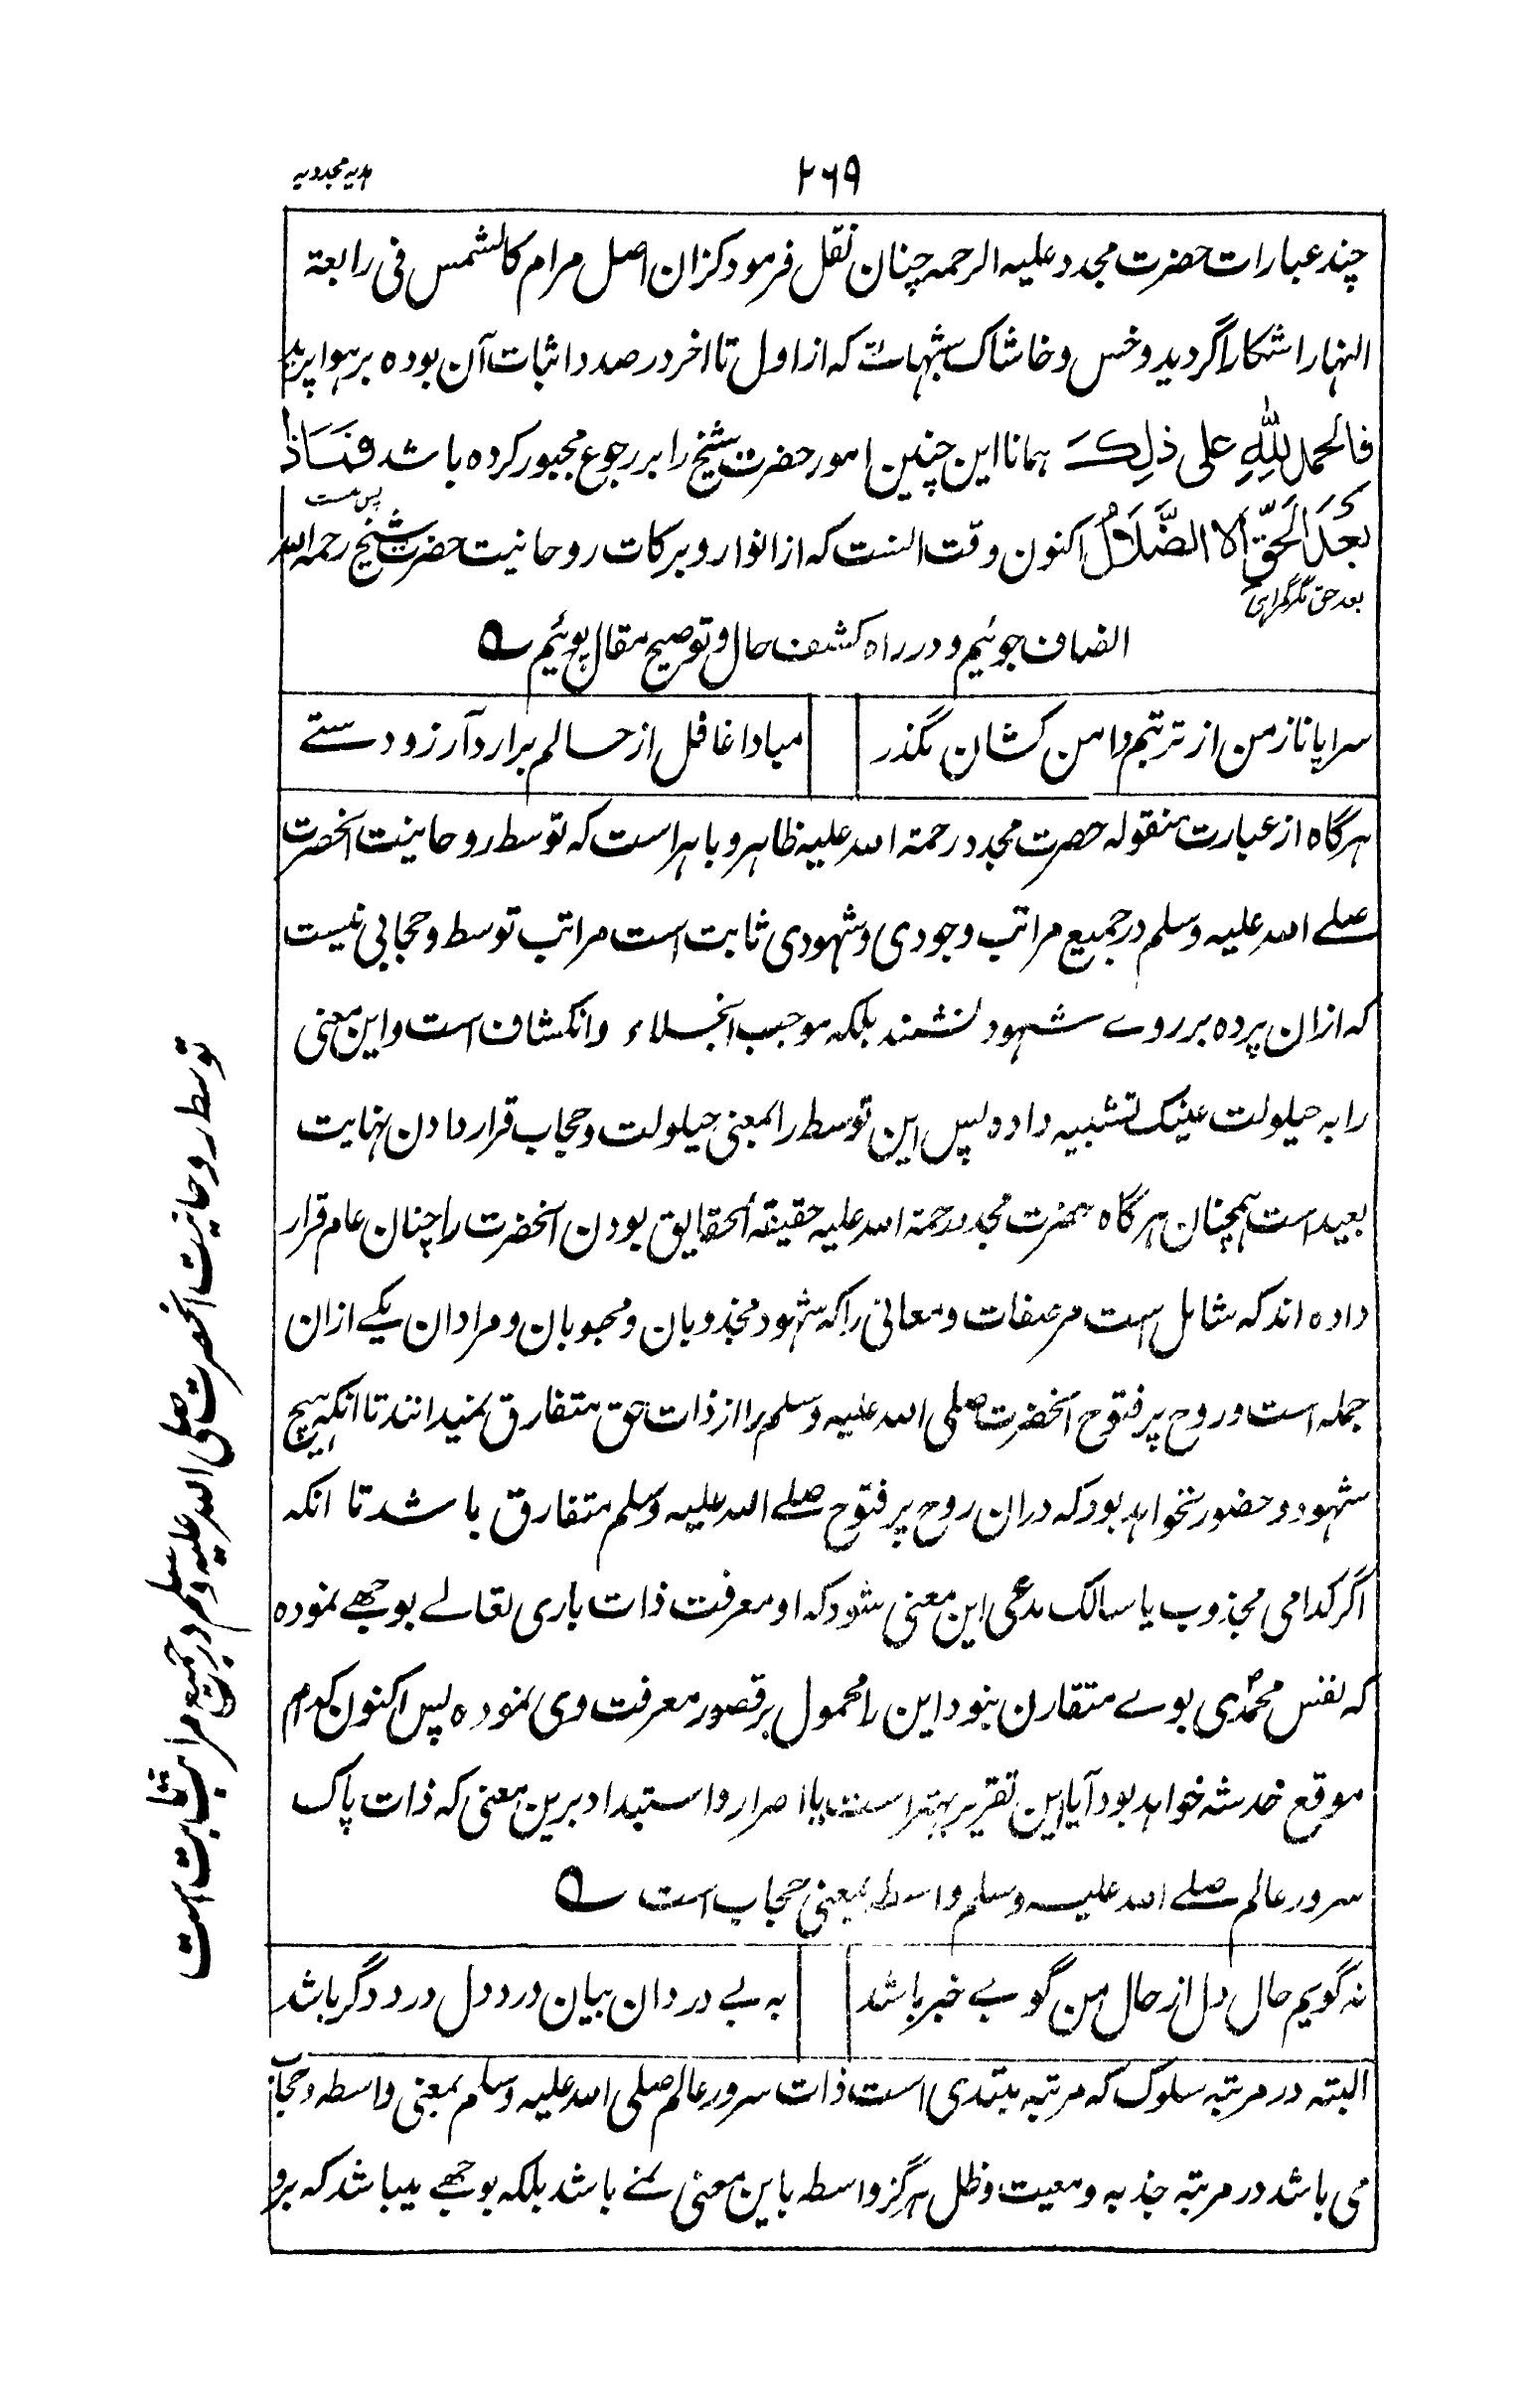 ۲۶۹
هدیه مجددیه
چند عبارات حضرت مجدد علیه الرحمه چنان نقل فرمود کزان اصل مرام کالشمس فی رابعة
النهار اشکارا گردید و خس و خاشاک شبهات که از اول تا اخر در صدد اثبات آن بوده بر هوا پرید
فالحمد لِلّٰهِ علی ذلِکَ همانا این چنین امور حضرت شیخ را بر رجوع مجبور کرده باشد فَمَاذا
پس نیست
بَعدَ الحَقِّ اِلا الضَّلَالُ اکنون وقت النست که از انوار و برکات روحانیت حضرت شیخ رحمه الله
بعد حق مگر گمراہی
انصاف جوئیم و در راه کشف حال و توضیح مقال پوئیم ؎
سراپا ناز من از تربتم دامن کشان مگذر مبادا غافل از حالم برارد آرزو دستے
هرگاه از عبارت منقوله حضرت مجدد رحمة الله علیه ظاهر و باهر است که توسط روحانیت انحضرت
صلے الله علیه وسلم در جمیع مراتب وجودی و شهودی ثابت است مراتب توسط و حجابی نیست
که ازان پرده بر روے شهود نشند بلکه موجب انجلاء و انکشاف است و این معنی
را به حیلولت عینک تشبیه داده پس این توسط را بمعنی حیلولت و حجاب قرار دادن نهایت
بعید است همچنان هرگاه حضرت مجدد رحمة الله علیه حقیقة الحقایق بودن انحضرت را چنان عام قرار
داده اند که شامل است مر صفات و معانی را که شهود مجذوبان و محبوبان و مرادان یکے ازان
جمله است و روح پر فتوح انحضرت صلی الله علیه وسلم را از ذات حق متفارق نمیدانند تا انکه هیچ
شهود و حضور نخواهد بود که دران روح پر فتوح صلے الله علیه وسلم متفارق باشد تا انکه
اگر کدامی مجذوب یا سالک مدعی این معنی شود که او معرفت ذات باری تعالے بوجهے نموده
که نفس محمدؐی بوے متقارن نبود این را محمول بر قصور معرفت وی نموده پس اکنون کدام
موقع خدشه خواهد بود آیا این تقریر بهتر است یا اصرار و استبداد برین معنی که ذات پاک
سرور عالم صلے الله علیه وسلم واسطه بمعنی حجاب است ؎
نه گویم حال دل از حال من گو بے خبر باشد به بے دردان بیان درد دل درد دگر باشد
البته در مرتبه سلوک که مرتبه مبتدی است ذات سرور عالم صلی الله علیه وسلم بمعنی واسطه و حجاب
می باشد در مرتبه جذبه و معیت و ظل هرگز واسطه باین معنی نمے باشد بلکه بوجهے میباشد که برو
توسط روحانیت انحضرت صلی الله علیه وسلم در جمیع مراتب ثابت است